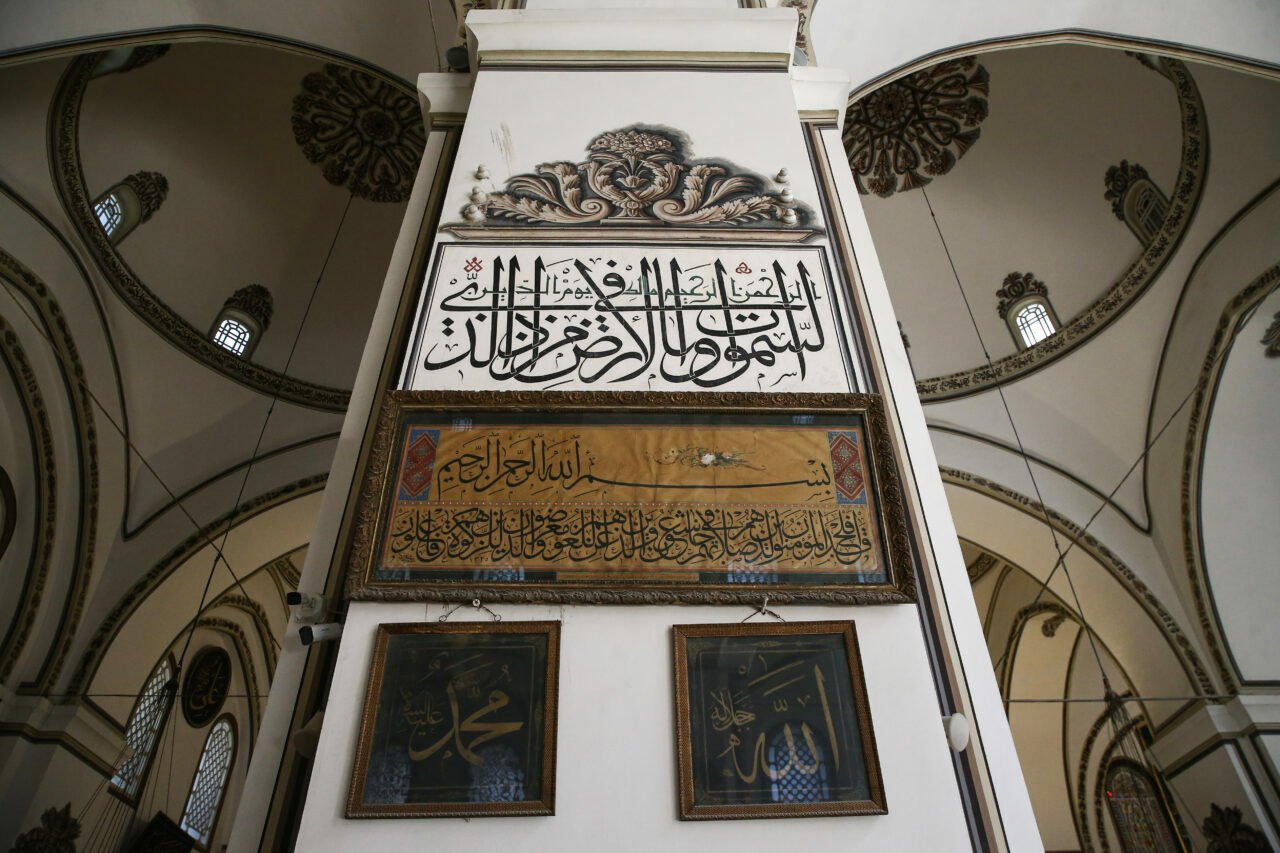 الرحمن الرحيم مالك يوم الدين
السموات وما في الأرض من ذا الذي
بسم الله الرحمن الرحيم
قد أفلح المؤمنون الذين هم في صلاتهم خاشعون والذين هم عن اللغو معرضون والذين هم للزكوة فاعلون
الله جل جلاله
محمد عليه